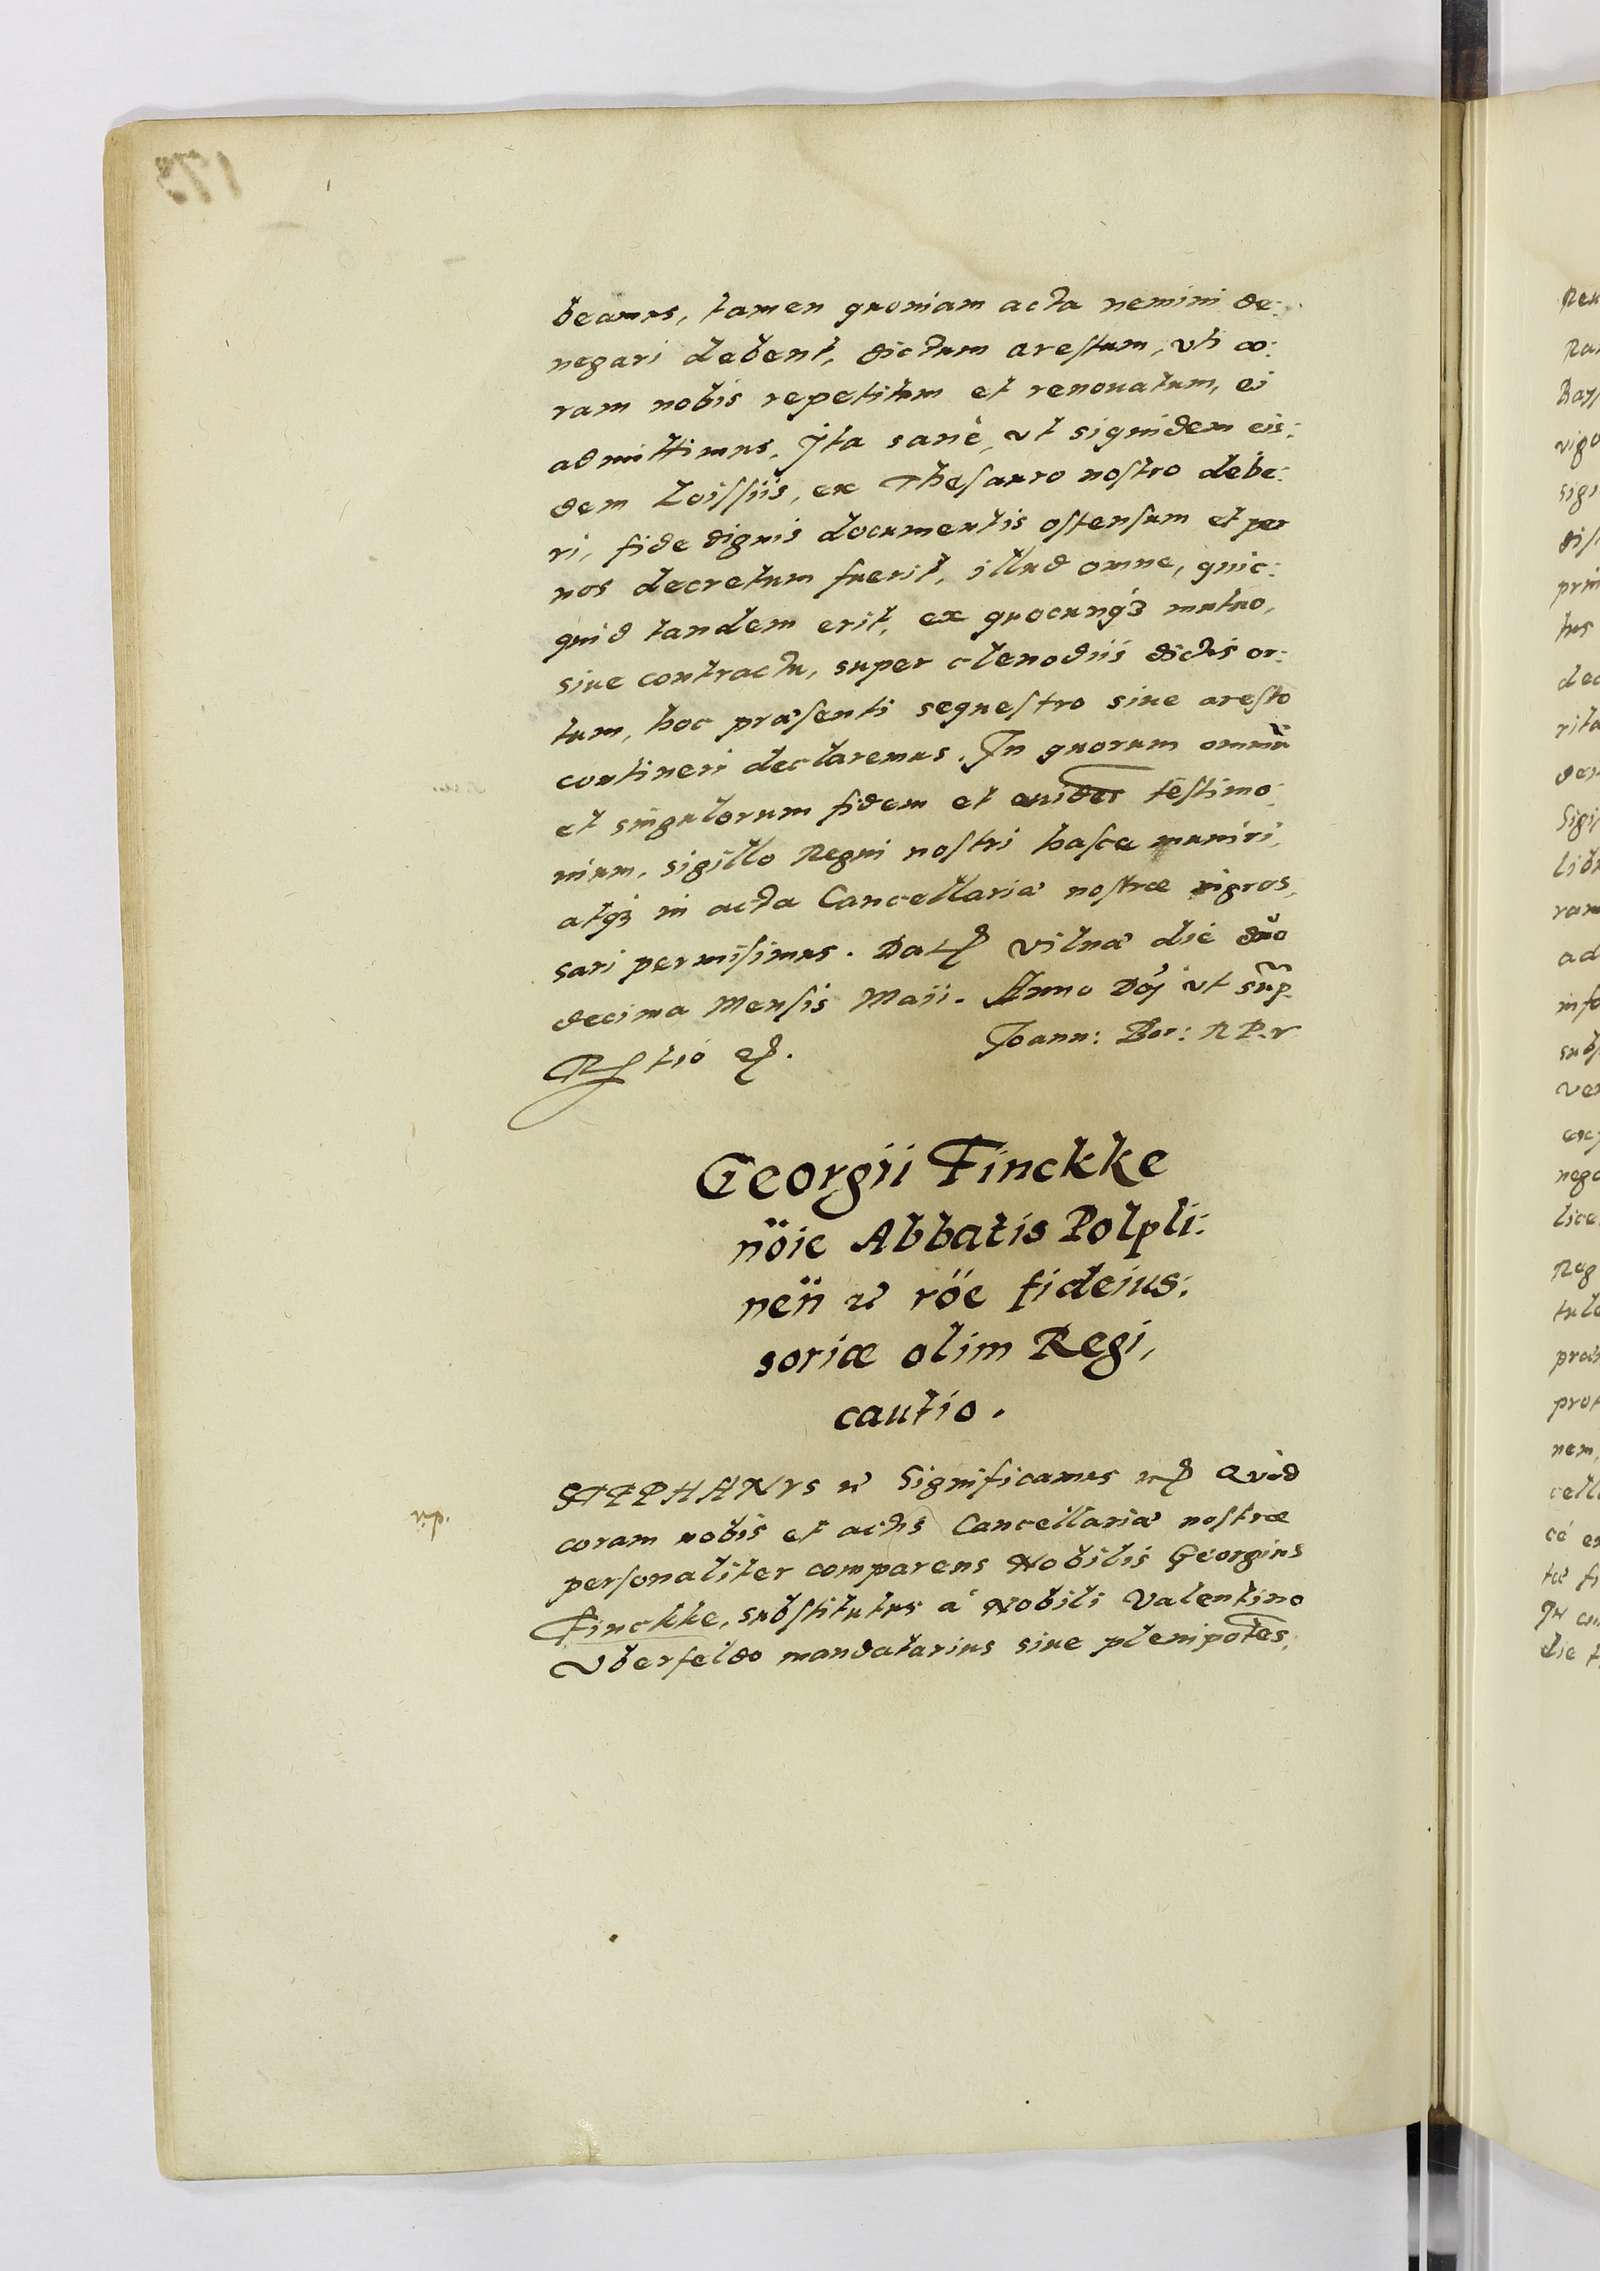 beamus, tamen quoniam acta nemini de:
negari debent, dictum arestum, vti co:
ram nobis repetitum et renouatum, ei
admittimus. Ita sanè, vt siquidem eis:
dem Loissiis, ex Thesauro nostro debe:
ri, fide dignis documentis ostensum et per
nos decretum fuerit, illud omne, quic:
quid tandem erit, ex quocunqȝ mutuo,
siue contractu, super clenodiis dictis or:
tum, hoc præsenti sequestro siue aresto
contineri declaremus. In quorum omniũ
et singulorum fidem et euidens testimo:
nium, sigillo Regni nostri hasce muniri,
atqȝ in acta Cancellariæ nostræ ingros,
sari permisimus. Dat Vilnæ die duo
decima Mensis Maii. Anno Dñj vt sup.
Rtio
Joann: Bor: R P. V
Georgii Finckke
nöie Abbatis Polpli:
neñ röe fideius:
soriæ olim Regi,
cautio.
STEPHANVS Significamus Quòd
coram nobis et actis Cancellariæ nostræ
personaliter comparens Nobilis Georgius
Finckke, substitutus à Nobili Valentino
Vberfeldo mandatarius siue plenipotes,